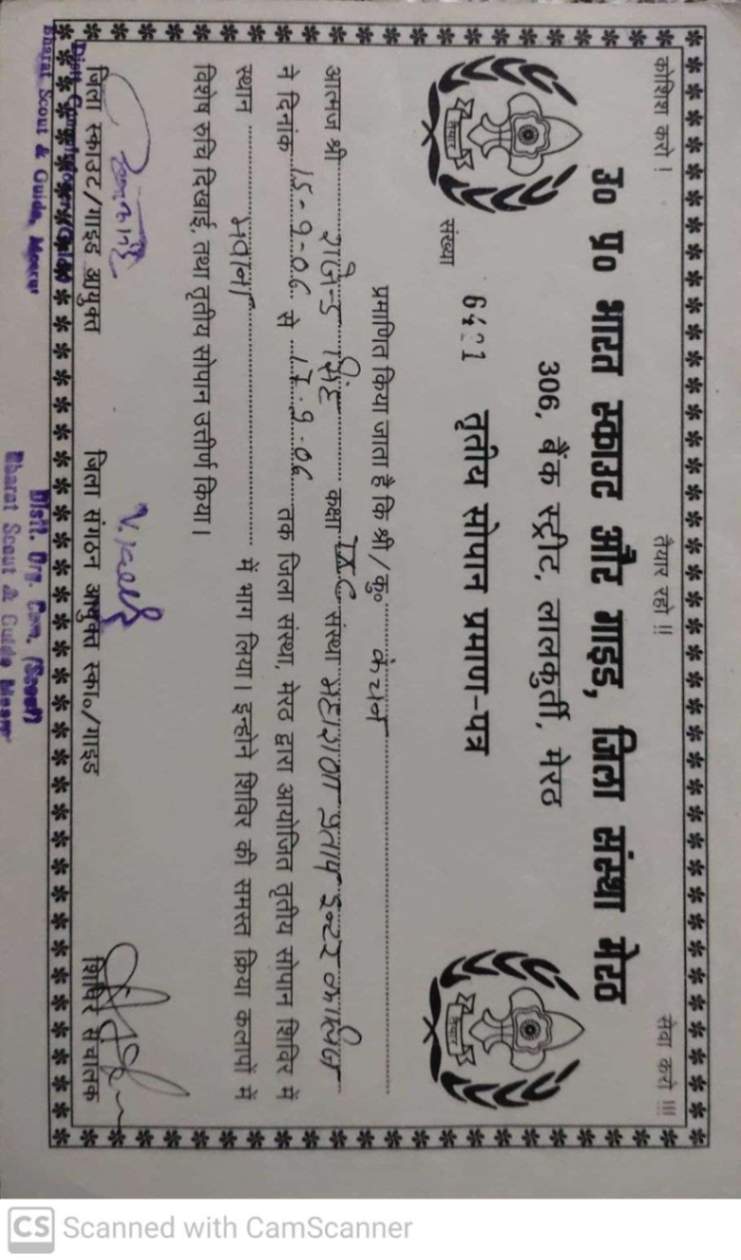 कोशिश करो ! तैयार रहो !! सेवा करो !!!
उ० प्र० भारत स्काउट और गाइड, जिला संस्था मेरठ
306, बैंक स्ट्रीट, लालकुर्ती, मेरठ
तैयार
तैयार
संख्या तृतीय सोपान प्रमाण-पत्र
प्रमाणित किया जाता है कि श्री/कु० कंचन
आत्मज श्री राजेन्द्र सिंह कक्षा संस्था महाराणा प्रताप इन्टर कालिज
ने दिनांक 15-9-06 से 17.9.06 तक जिला संस्था, मेरठ द्वारा आयोजित तृतीय सोपान शिविर में
स्थान मवाना में भाग लिया। इन्होने शिविर की समस्त क्रिया कलापों में
विशेष रुचि दिखाई, तथा तृतीय सोपान उत्तीर्ण किया।
जिला स्काउट/गाइड आयुक्त जिला संगठन आयुक्त स्का०/गाइड शिविर संचालक
Bharat Scout & Guide, Meerut
Distt. Org. Com. (Scout)
Bharat Scout & Guide Meerut
CS Scanned with CamScanner